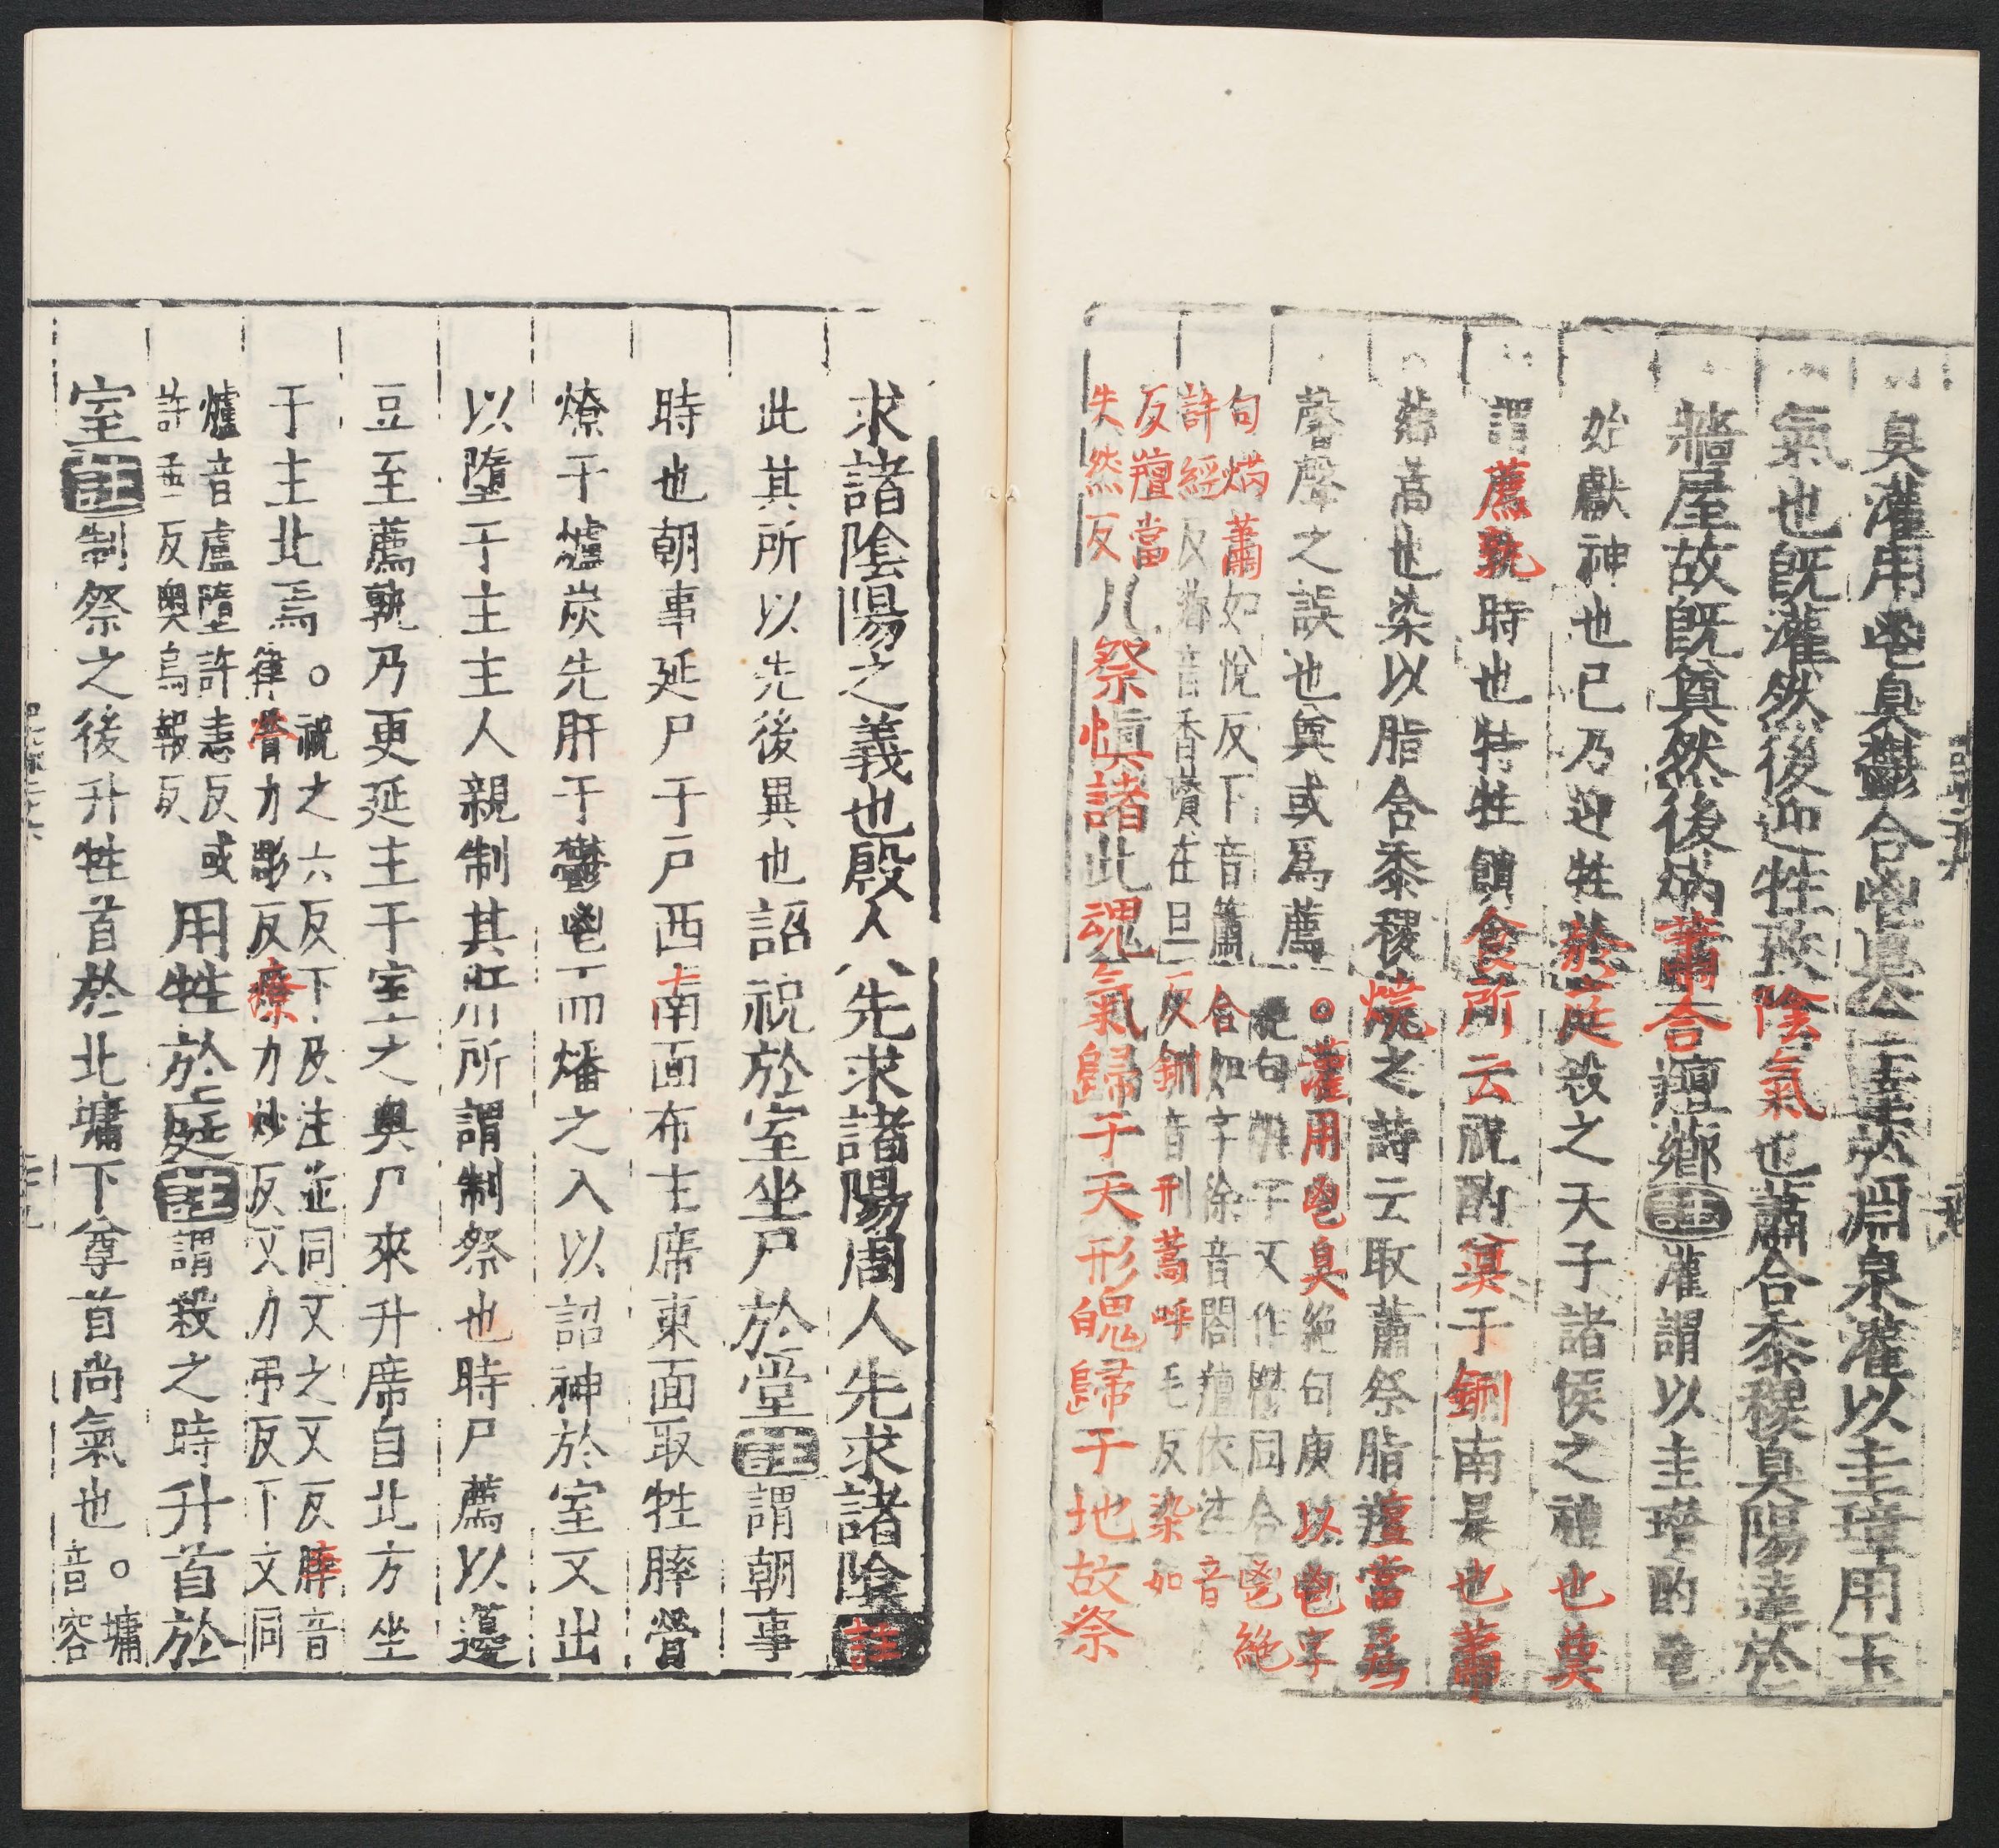 臭灌用鬯臭鬱合鬯臭陰達於淵泉灌以圭璋用玉
氣也旣灌然後迎牲致陰氣也蕭合黍稷臭陽達於
牆屋故旣奠然後焫蕭合羶薌註灌謂以圭瓚酌鬯
始獻神也已乃迎牲於庭殺之天子諸侯之禮也奠
謂薦孰時也特牲饋食所云祝酌奠于鉶南是也蕭
薌蒿也染以脂合黍稷燒之詩云取蕭祭脂羶當爲
馨聲之誤也奠或爲薦
○灌用鬯臭絕句庾以鬯字
句焫蕭如悅反下音蕭
許經反薌音香瓚在旦
絕句鬱字又作欝同合鬯絕
合如字徐音閤羶依注音
反鉶音刑蒿呼毛反染如
反羶當
失然反
凡祭愼諸此魂氣歸于天形魄歸于地故祭
求諸陰陽之義也殷人先求諸陽周人先求諸陰註
此其所以先後異也詔祝於室坐尸於堂註謂朝事
時也朝事延尸于戶西南面布主席東面取牲膟膋
燎于爐炭先肝于鬱鬯而燔之入以詔神於室又出
以墮于主主人親制其肝所謂制祭也時尸薦以籩
豆至薦孰乃更延主于室之奧尸來升席自北方坐
于主北焉○祝之六反下及注並同又之又反膟音
律膋力彫反燎力妙反又力弔反下文同
爐音盧墮許恚反或
許垂反奧烏報反
用牲於庭註謂殺之時升首於
室註制祭之後升牲首於北墉下尊首尚氣也○墉
音容